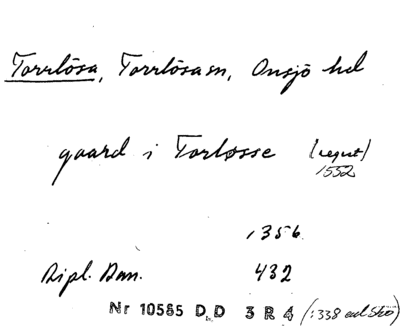 Torrlösa, Torrlösa sn, Onsjö hd
gaard i Torløsse (regest)
1552
1356
Dipl. Dan. 432
Nr 10585 D D 3 R 4 (:338